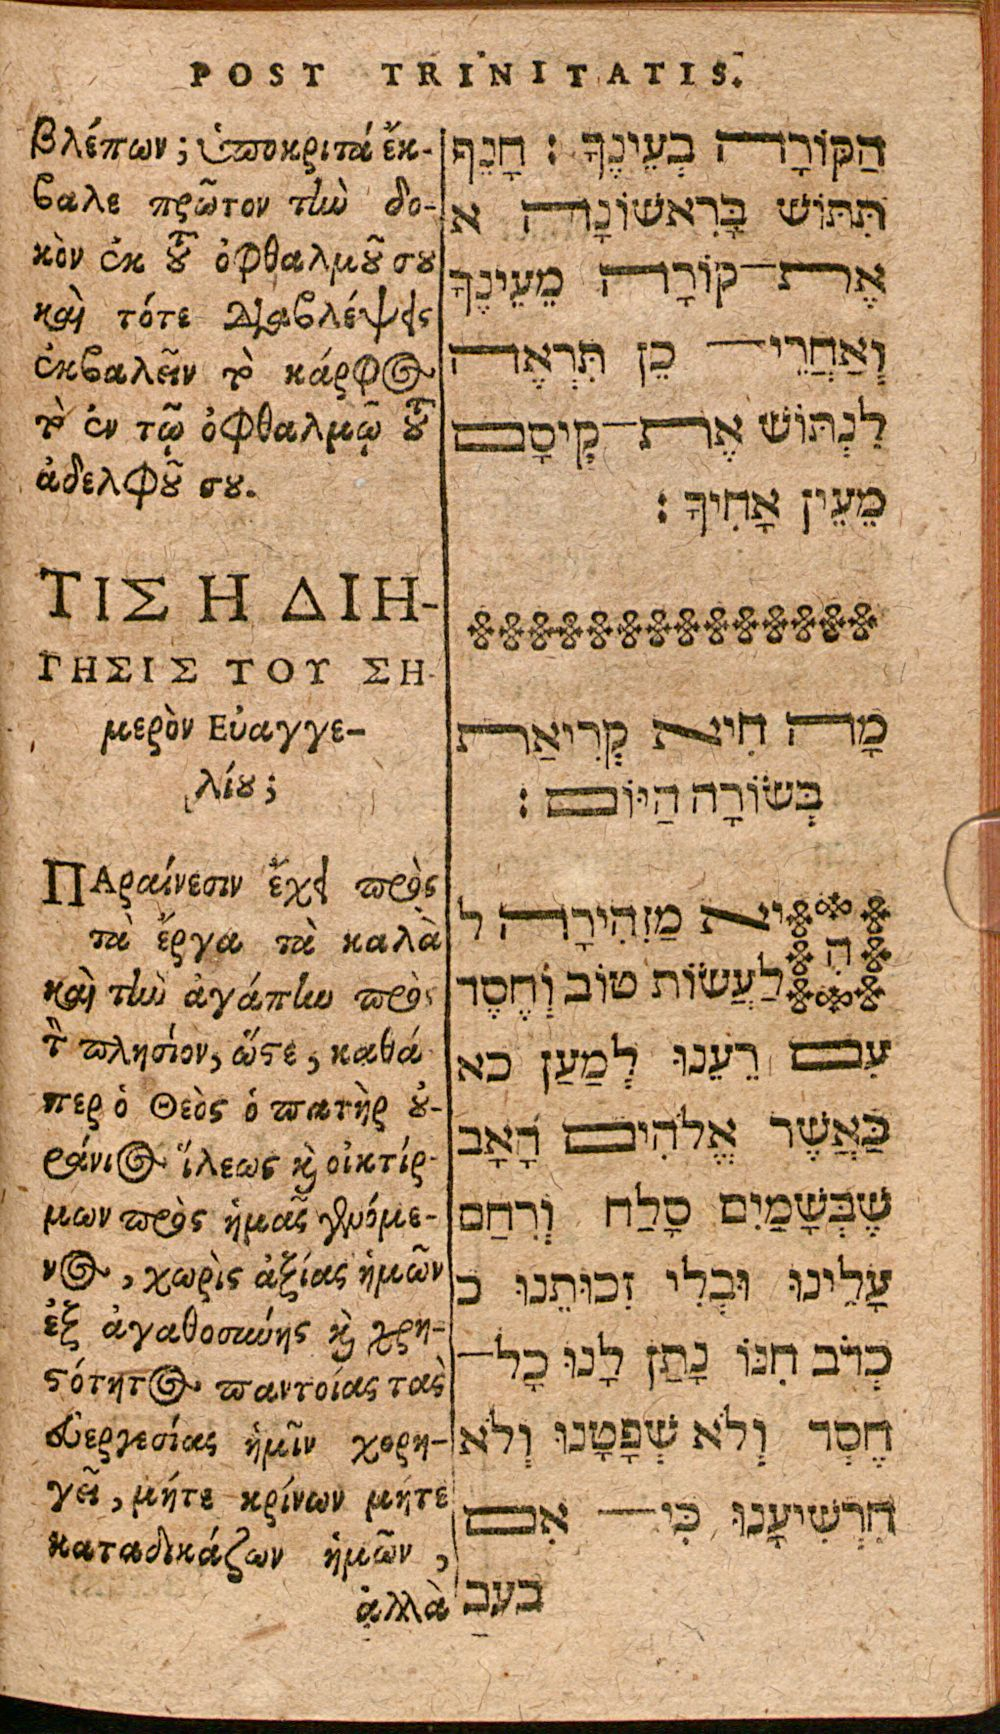 POST TRINITATIS.
βλέπων; ὑποκριτά ἔκ-
βαλε πρῶτον τὴν δο-
κὸν ἐκ τοῦ ὀφθαλμοῦ σου
καὶ τότε διαβλέψεις
ἐκβαλεῖν τὸ κάρφος
τὸ ἐν τῷ ὀφθαλμῷ τοῦ
ἀδελφοῦ σου.
ΤΙΣ Η ΔΙΗ-
ΓΗΣΙΣ ΤΟΥ ΣΗ-
μερὸν Εὐαγγε-
λίου;
ΠΑραίνεσιν ἔχει πρὸς
τὰ ἔργα τὰ καλὰ
καὶ τὴν ἀγάπην πρὸς
τὸν πλησίον, ὥστε, καθά
περ ὁ Θεὸς ὁ πατὴρ οὐ-
ράνιος ἵλεως καὶ οἰκτίρ-
μων πρὸς ἡμᾶς γενόμε-
νος, χωρὶς ἀξίας ἡμῶν
ἐξ ἀγαθοσύνης καὶ χρη-
στότητος παντοίας τὰς
εὐεργεσίας ἡμῖν χορη-
γεῖ, μήτε κρίνων μήτε
καταδικάζων ἡμῶν,
ἀλλὰ
הַקּוֹרָה בְעֵינֶךָ : חָנֵף
תִּתּוֹשׁ בָּרִאשׁוֹנָה א
אֶת־קוֹרָה מֵעֵינֶךָ
וְאַחֲרֵי־ כֵן תִּרְאֶה
לִנְתּוֹשׁ אֶת־קִיסָם
מֵעֵין אָחִיךָ :
מָה הִיא קְרִיאַת
בְּשׂוֹרָה הַיּוֹם :
הִיא מַזְהִירָה ל
לַעֲשׂוֹת טוֹב וְחֶסֶד
עִם רֵעֵנוּ לְמַעַן כא
כַּאֲשֶׁר אֱלֹהִים הָאָב
שֶׁבְּשָׁמַיִם סָלַח וְרִחַם
עָלֵינוּ וּבְלִי זְכוּתֵנוּ כ
כְּרֹב חִנּוֹ נָתַן לָנוּ כָל־
חֶסֶד וְלֹא שְׁפָטָנוּ וְלֹא
הִרְשִׁיעָנוּ כִּי־ אִם
בעב